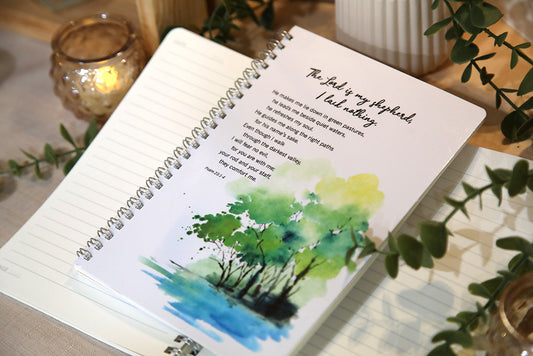 The Lord is my shepherd,
I lack nothing.
He makes me lie down in green pastures,
he leads me beside quiet waters,
he refreshes my soul.
He guides me along the right paths
for his name's sake.
Even though I walk
through the darkest valley,
I will fear no evil,
for you are with me;
your rod and your staff,
they comfort me.
Psalm 23:1-4